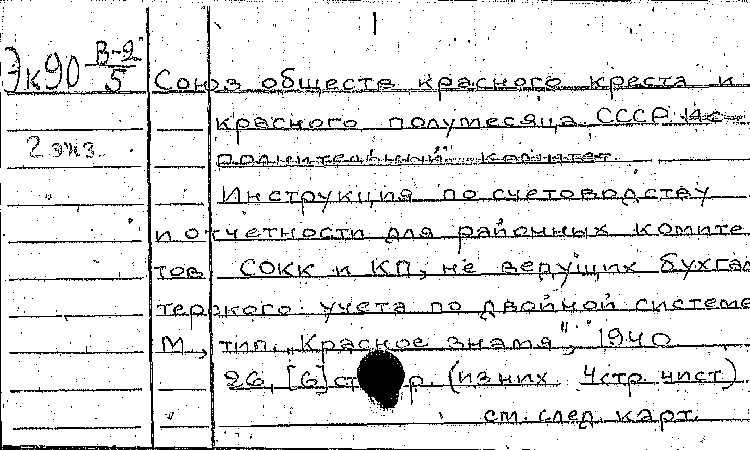 Эк90 В-2
5
Союз обществ красного креста и
красного полумесяца СССР. Ис-
полнительный комитет.
2 экз.
Инструкция по счетоводству
и отчетности для районных комите
тов СОКК и КП, не ведущих бухгал
терского учета по двойной системе
М., тип. „Красное знамя", 1940
26, [6] ст р. (из них 4 стр чист)
см. след. карт.